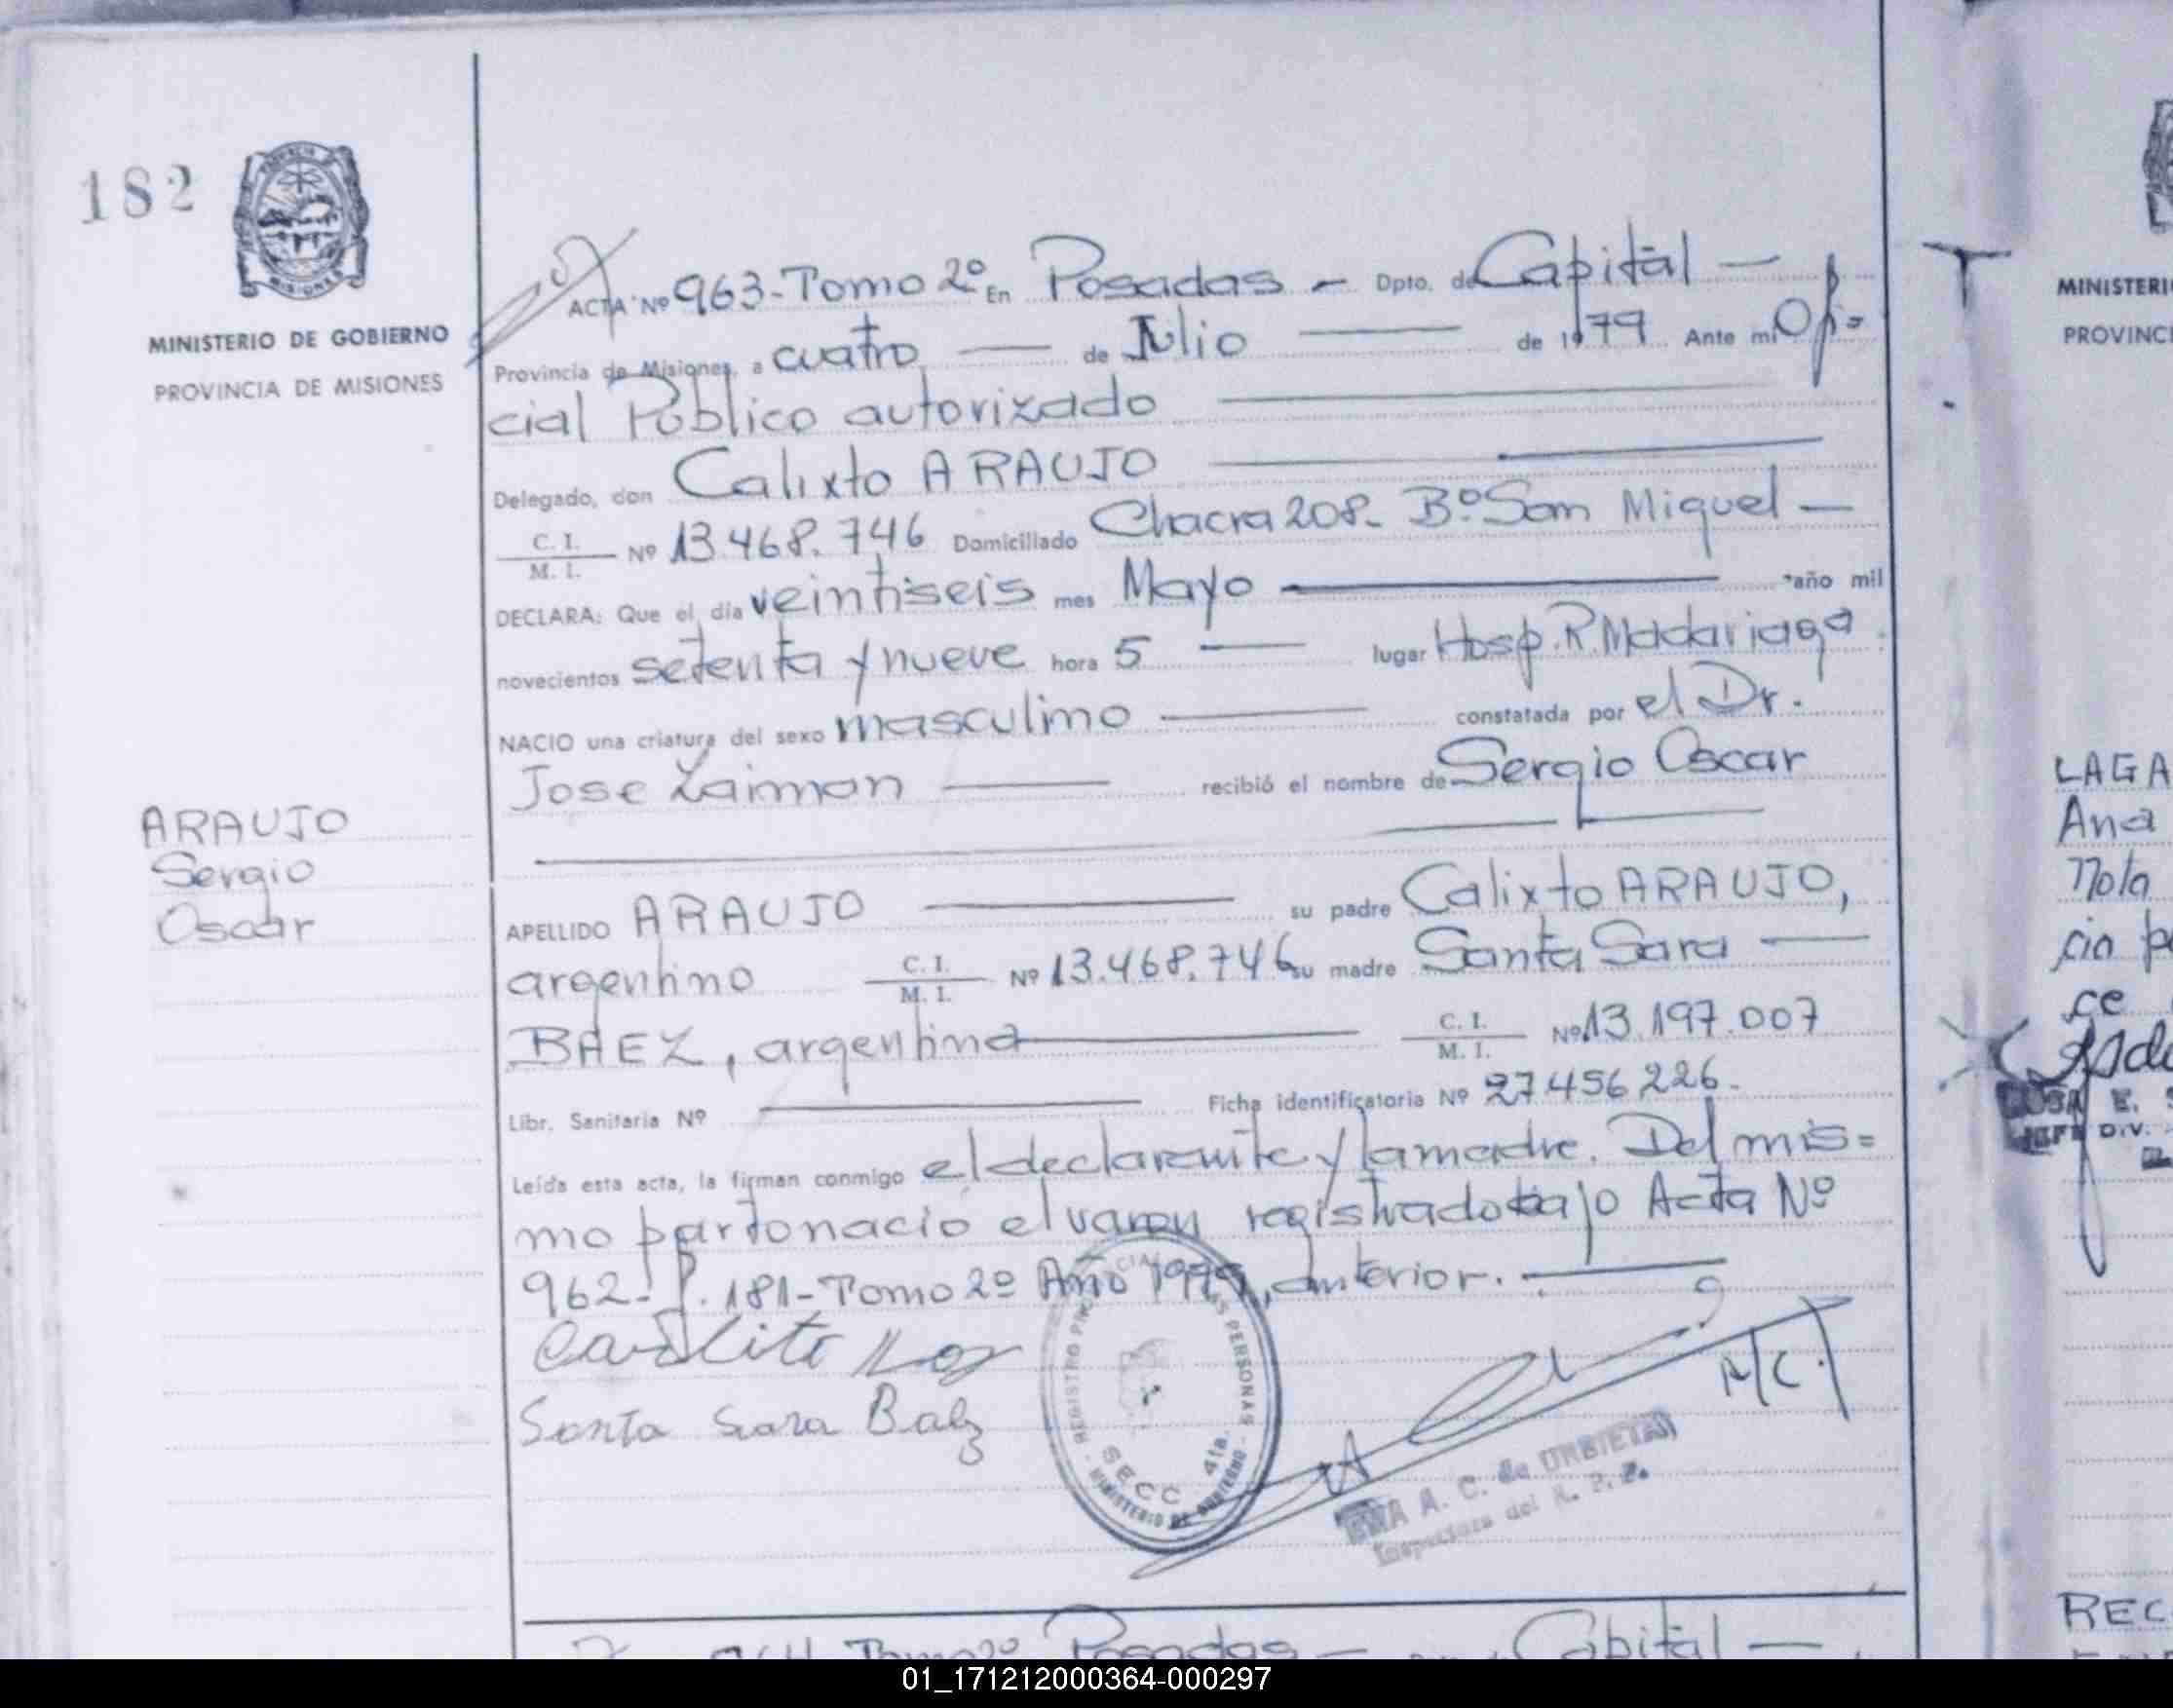 182
PROVINCIA DE
MISIONES
MINISTERIO DE GOBIERNO
PROVINCIA DE MISIONES
ACTA Nº 963-Tomo 2º En Posadas - Dpto. de Capital -
Provincia de Misiones, a cuatro — de Julio — de 1979 Ante mi Ofi-
cial Público autorizado
Delegado, don Calixto ARAUJO
C. I.
M. I. Nº 13.468.746 Domiciliado Chacra 208- Bº San Miguel -
DECLARA: Que el día veintiseis mes Mayo — año mil
novecientos setenta y nueve hora 5 — lugar Hosp. R. Madariaga.
NACIO una criatura del sexo masculino — constatada por el Dr.
Jose Zaiman — recibió el nombre de Sergio Oscar
ARAUJO
Sergio
Oscar
APELLIDO ARAUJO — su padre Calixto ARAUJO,
argentino C. I.
M. I. Nº 13.468.746 su madre Santa Sara —
BAEZ, argentina — C. I.
M. I. Nº 13.197.007
Libr. Sanitaria Nº — Ficha identificatoria Nº 27.456.226.-
Leída esta acta, la firman conmigo el declarante y la madre. Del mis=
mo parto nacio el varon registrado bajo Acta Nº
962- f. 181-Tomo 2º Año 1979, anterior.
Santa Sara Baez
REGISTRO PROVINCIAL DE LAS PERSONAS
SECC 4ta.
- MINISTERIO DE GOBIERNO -
A/C.
A. C. de URBIETA
Inspectora del R. P. P.
Tomo 2º Posadas — Capital —
MINISTERI
PROVINC
LAGA
Ana
Nota
cio
ce
E.
JEFE DIV.
REC
01_171212000364-000297